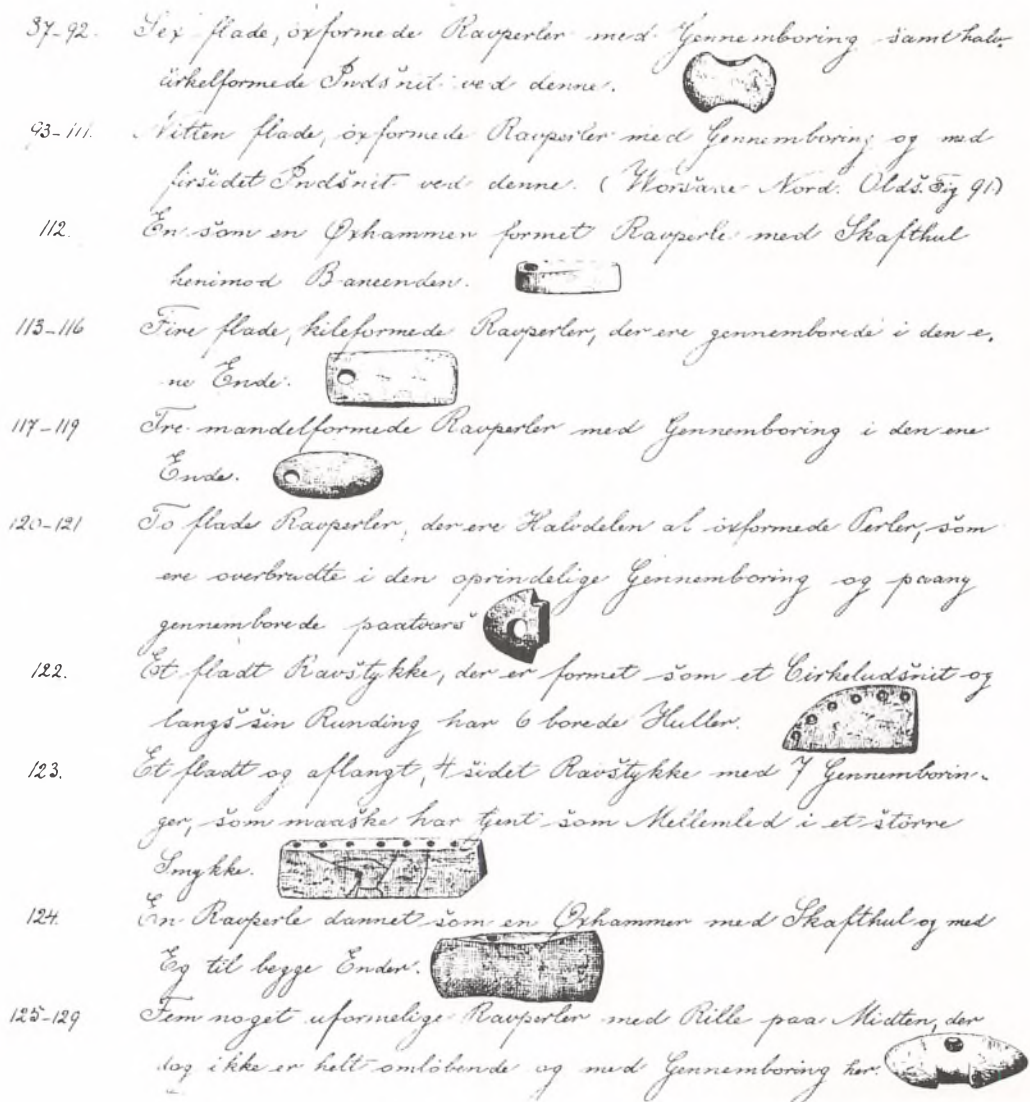 87-92. Sex flade, öxformede Ravperler med Gennemboring samt halv-
cirkelformede Indsnit ved denne.
93-111. Nitten flade, öxformede Ravperler med Gennemboring og med
firsidet Indsnit ved denne. (Worsaae Nord. Olds. Fig 91.)
112. En som en Øxhammer formet Ravperle med Skafthul
henimod Baneenden.
113-116 Fire flade, kileformede Ravperler, der ere gennemborede i den e-
ne Ende.
117-119 Tre mandelformede Ravperler med Gennemboring i den ene
Ende.
120-121 To flade Ravperler, der ere Halvdelen af öxformede Perler, som
ere overbrudte i den oprindelige Gennemboring og paany
gennemborede paatværs
122. Et fladt Ravstykke, der er formet som et Cirkeludsnit og
langs sin Runding har 6 borede Huller.
123. Et fladt og aflangt, 4 sidet Ravstykke med 7 Gennemborin-
ger, som maaske har tjent som Mellemled i et större
Smykke.
124. En Ravperle dannet som en Øxhammer med Skafthul og med
Eg til begge Ender.
125-129 Fem noget uformelige Ravperler med Rille paa Midten, der
dog ikke er helt omlöbende og med Gennemboring her.